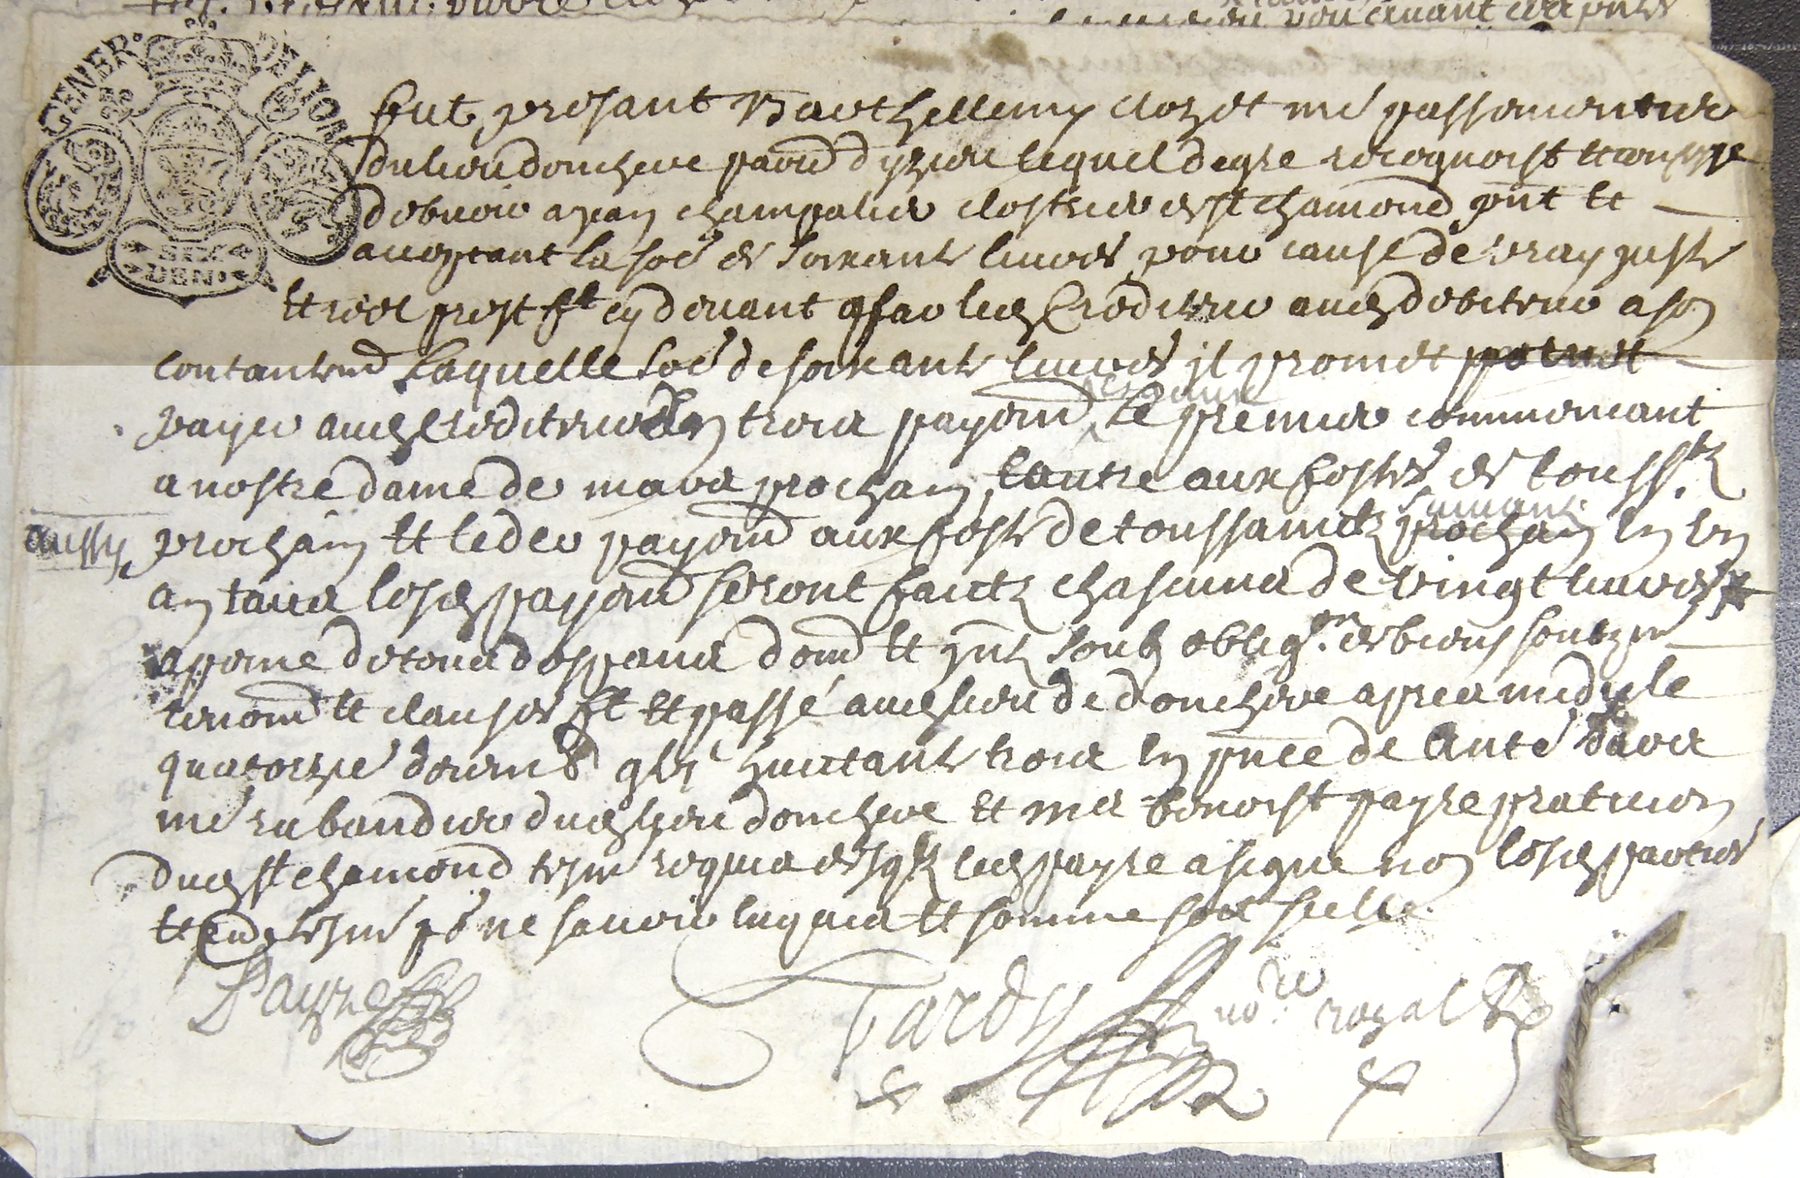 GENER. DE LYON
SIX
DEN.
fut presant Barthellemy clozet me passementier
du lieu doncheve paroise d'yzieu lequel de gre recognoist et confesse
debvoir a jean champalier clostrier de st chamond pnt et
acceptant la soe de soixante livres pour cause de vray juste
et reel prest ft cy devant par led crediteur aud debiteur a son
contantemt laquelle soe de soixante livres il promet
payer aud crediteur en trois payemt le premier commencant
a nostre dame de mars prochain lautre aux festes de toussts
aussy prochain et le der payemt aux feste de toussainctz suivant en un
an lesd payemt seront faictz chascung de vingt livres
a peine de tous despans dom et intz soubz obligon de biens soubzmi
renom et clauses ft et passé aud lieu de doncheve apres midy le
quatorze de et trois en pnce de Anté
me rubandier dud lieu doncheve et me benoist payre praticien
dud st chamond tesm requis led payre a signe non lesd parties
et tesm pour ne savoir enquis et somme soit scelle
Payre
Tardy nore royal